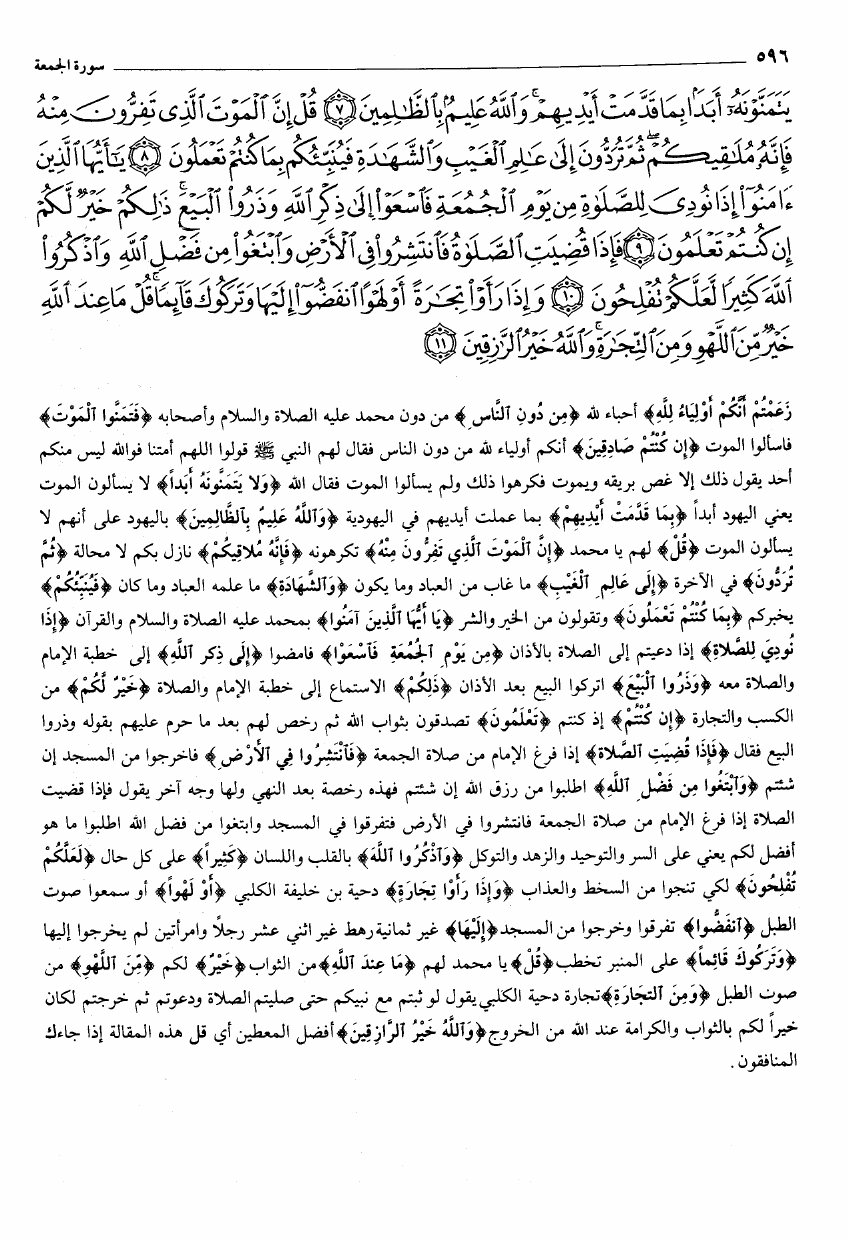 ٥٩٦
سورة الجمعة
يَتَمَنَّوْنَهُۥٓ أَبَدَۢا بِمَا قَدَّمَتْ أَيْدِيهِمْۚ وَٱللَّهُ عَلِيمٌۢ بِٱلظَّٰلِمِينَ ٧ قُلْ إِنَّ ٱلْمَوْتَ ٱلَّذِى تَفِرُّونَ مِنْهُ
فَإِنَّهُۥ مُلَٰقِيكُمْۖ ثُمَّ تُرَدُّونَ إِلَىٰ عَٰلِمِ ٱلْغَيْبِ وَٱلشَّهَٰدَةِ فَيُنَبِّئُكُم بِمَا كُنتُمْ تَعْمَلُونَ ٨ يَٰٓأَيُّهَا ٱلَّذِينَ
ءَامَنُوٓا۟ إِذَا نُودِىَ لِلصَّلَوٰةِ مِن يَوْمِ ٱلْجُمُعَةِ فَٱسْعَوْا۟ إِلَىٰ ذِكْرِ ٱللَّهِ وَذَرُوا۟ ٱلْبَيْعَۚ ذَٰلِكُمْ خَيْرٌ لَّكُمْ
إِن كُنتُمْ تَعْلَمُونَ ٩ فَإِذَا قُضِيَتِ ٱلصَّلَوٰةُ فَٱنتَشِرُوا۟ فِى ٱلْأَرْضِ وَٱبْتَغُوا۟ مِن فَضْلِ ٱللَّهِ وَٱذْكُرُوا۟
ٱللَّهَ كَثِيرًا لَّعَلَّكُمْ تُفْلِحُونَ ١٠ وَإِذَا رَأَوْا۟ تِجَٰرَةً أَوْ لَهْوًا ٱنفَضُّوٓا۟ إِلَيْهَا وَتَرَكُوكَ قَآئِمًاۚ قُلْ مَا عِندَ ٱللَّهِ
خَيْرٌ مِّنَ ٱللَّهْوِ وَمِنَ ٱلتِّجَٰرَةِۚ وَٱللَّهُ خَيْرُ ٱلرَّٰزِقِينَ ١١
زَعَمْتُمْ أَنَّكُمْ أَوْلِيَاءُ لِلَّهِ﴾ أحباء لله ﴿مِن دُونِ ٱلنَّاسِ﴾ من دون محمد عليه الصلاة والسلام وأصحابه ﴿فَتَمَنَّوا ٱلْمَوْتَ﴾
فاسألوا الموت ﴿إِن كُنْتُمْ صَادِقِينَ﴾ أنكم أولياء لله من دون الناس فقال لهم النبي ﷺ قولوا اللهم أمتنا فوالله ليس منكم
أحد يقول ذلك إلا غص بريقه ويموت فكرهوا ذلك ولم يسألوا الموت فقال الله ﴿وَلَا يَتَمَنَّونَهُ أَبَداً﴾ لا يسألون الموت
يعني اليهود أبداً ﴿بِمَا قَدَّمَتْ أَيْدِيهِمْ﴾ بما عملت أيديهم في اليهودية ﴿وَٱللَّهُ عَلِيمٌ بِٱلظَّالِمِينَ﴾ باليهود على أنهم لا
يسألون الموت ﴿قُلْ﴾ لهم يا محمد ﴿إِنَّ ٱلْمَوْتَ ٱلَّذِي تَفِرُّونَ مِنْهُ﴾ تكرهونه ﴿فَإِنَّهُ مُلَاقِيكُمْ﴾ نازل بكم لا محالة ﴿ثُمَّ
تُرَدُّونَ﴾ في الآخرة ﴿إِلَى عَالِمِ ٱلْغَيْبِ﴾ ما غاب من العباد وما يكون ﴿وَٱلشَّهَادَةِ﴾ ما علمه العباد وما كان ﴿فَيُنَبِّئُكُمْ﴾
يخبركم ﴿بِمَا كُنْتُمْ تَعْمَلُونَ﴾ وتقولون من الخير والشر ﴿يَا أَيُّهَا ٱلَّذِينَ آمَنُوا﴾ بمحمد عليه الصلاة والسلام والقرآن ﴿إِذَا
نُودِيَ لِلصَّلَاةِ﴾ إذا دعيتم إلى الصلاة بالأذان ﴿مِن يَوْمِ ٱلْجُمُعَةِ فَٱسْعَوْا﴾ فامضوا ﴿إِلَى ذِكْرِ ٱللَّهِ﴾ إلى خطبة الإمام
والصلاة معه ﴿وَذَرُوا ٱلْبَيْعَ﴾ اتركوا البيع بعد الأذان ﴿ذَلِكُمْ﴾ الاستماع إلى خطبة الإمام والصلاة ﴿خَيْرٌ لَّكُمْ﴾ من
الكسب والتجارة ﴿إِن كُنْتُمْ﴾ إذ كنتم ﴿تَعْلَمُونَ﴾ تصدقون بثواب الله ثم رخص لهم بعد ما حرم عليهم بقوله وذروا
البيع فقال ﴿فَإِذَا قُضِيَتِ ٱلصَّلَاةُ﴾ إذا فرغ الإمام من صلاة الجمعة ﴿فَٱنْتَشِرُوا فِي ٱلْأَرْضِ﴾ فاخرجوا من المسجد إن
شئتم ﴿وَٱبْتَغُوا مِن فَضْلِ ٱللَّهِ﴾ اطلبوا من رزق الله إن شئتم فهذه رخصة بعد النهي ولها وجه آخر يقول فإذا قضيت
الصلاة إذا فرغ الإمام من صلاة الجمعة فانتشروا في الأرض فتفرقوا في المسجد وابتغوا من فضل الله اطلبوا ما هو
أفضل لكم يعني على السر والتوحيد والزهد والتوكل ﴿وَٱذْكُرُوا ٱللَّهَ﴾ بالقلب واللسان ﴿كَثِيراً﴾ على كل حال ﴿لَعَلَّكُمْ
تُفْلِحُونَ﴾ لكي تنجوا من السخط والعذاب ﴿وَإِذَا رَأَوْا تِجَارَةٍ﴾ دحية بن خليفة الكلبي ﴿أَوْ لَهْواً﴾ أو سمعوا صوت
الطبل ﴿ٱنفَضُّوا﴾ تفرقوا وخرجوا من المسجد ﴿إِلَيْهَا﴾ غير ثمانية رهط غير اثني عشر رجلاً وامرأتين لم يخرجوا إليها
﴿وَتَرَكُوكَ قَائِماً﴾ على المنبر تخطب ﴿قُلْ﴾ يا محمد لهم ﴿مَا عِندَ ٱللَّهِ﴾ من الثواب ﴿خَيْرٌ﴾ لكم ﴿مِّنَ ٱللَّهْوِ﴾ من
صوت الطبل ﴿وَمِنَ ٱلتِّجَارَةِ﴾ تجارة دحية الكلبي يقول لو ثبتم مع نبيكم حتى صليتم الصلاة ودعوتم ثم خرجتم لكان
خيراً لكم بالثواب والكرامة عند الله من الخروج ﴿وَٱللَّهُ خَيْرُ ٱلرَّازِقِينَ﴾ أفضل المعطين أي قل هذه المقالة إذا جاءك
المنافقون .